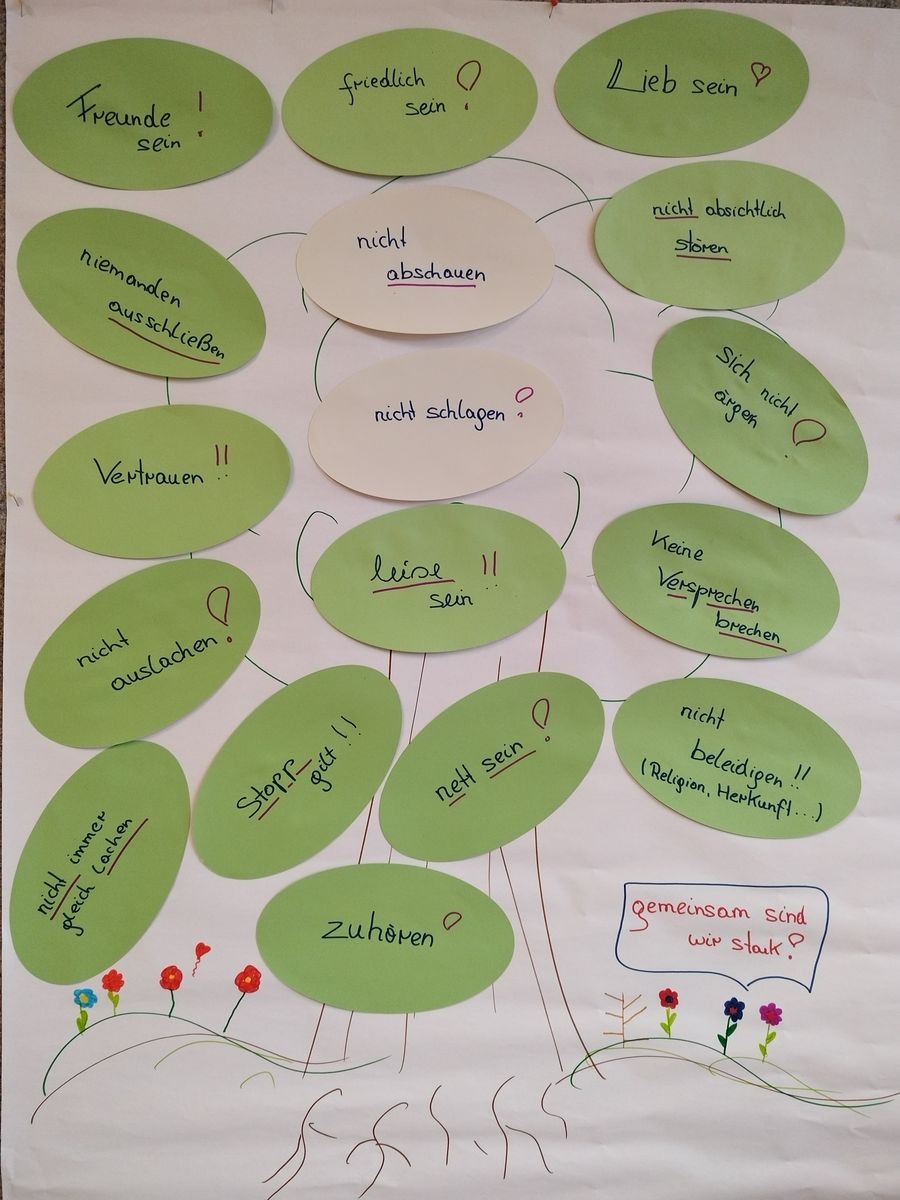 Freunde !
sein
friedlich
sein !
Lieb sein
nicht absichtlich
stören
nicht
abschauen
niemanden
ausschließen
Sich nicht
ärgern !
nicht schlagen !
Vertrauen !!
leise !!
sein
Keine
Versprechen
brechen
nicht
auslachen !
Stopp
gilt !!
nett sein !
nicht
beleidigen !!
(Religion, Herkunft...)
nicht immer
gleich lachen
zuhören
gemeinsam sind
wir stark !